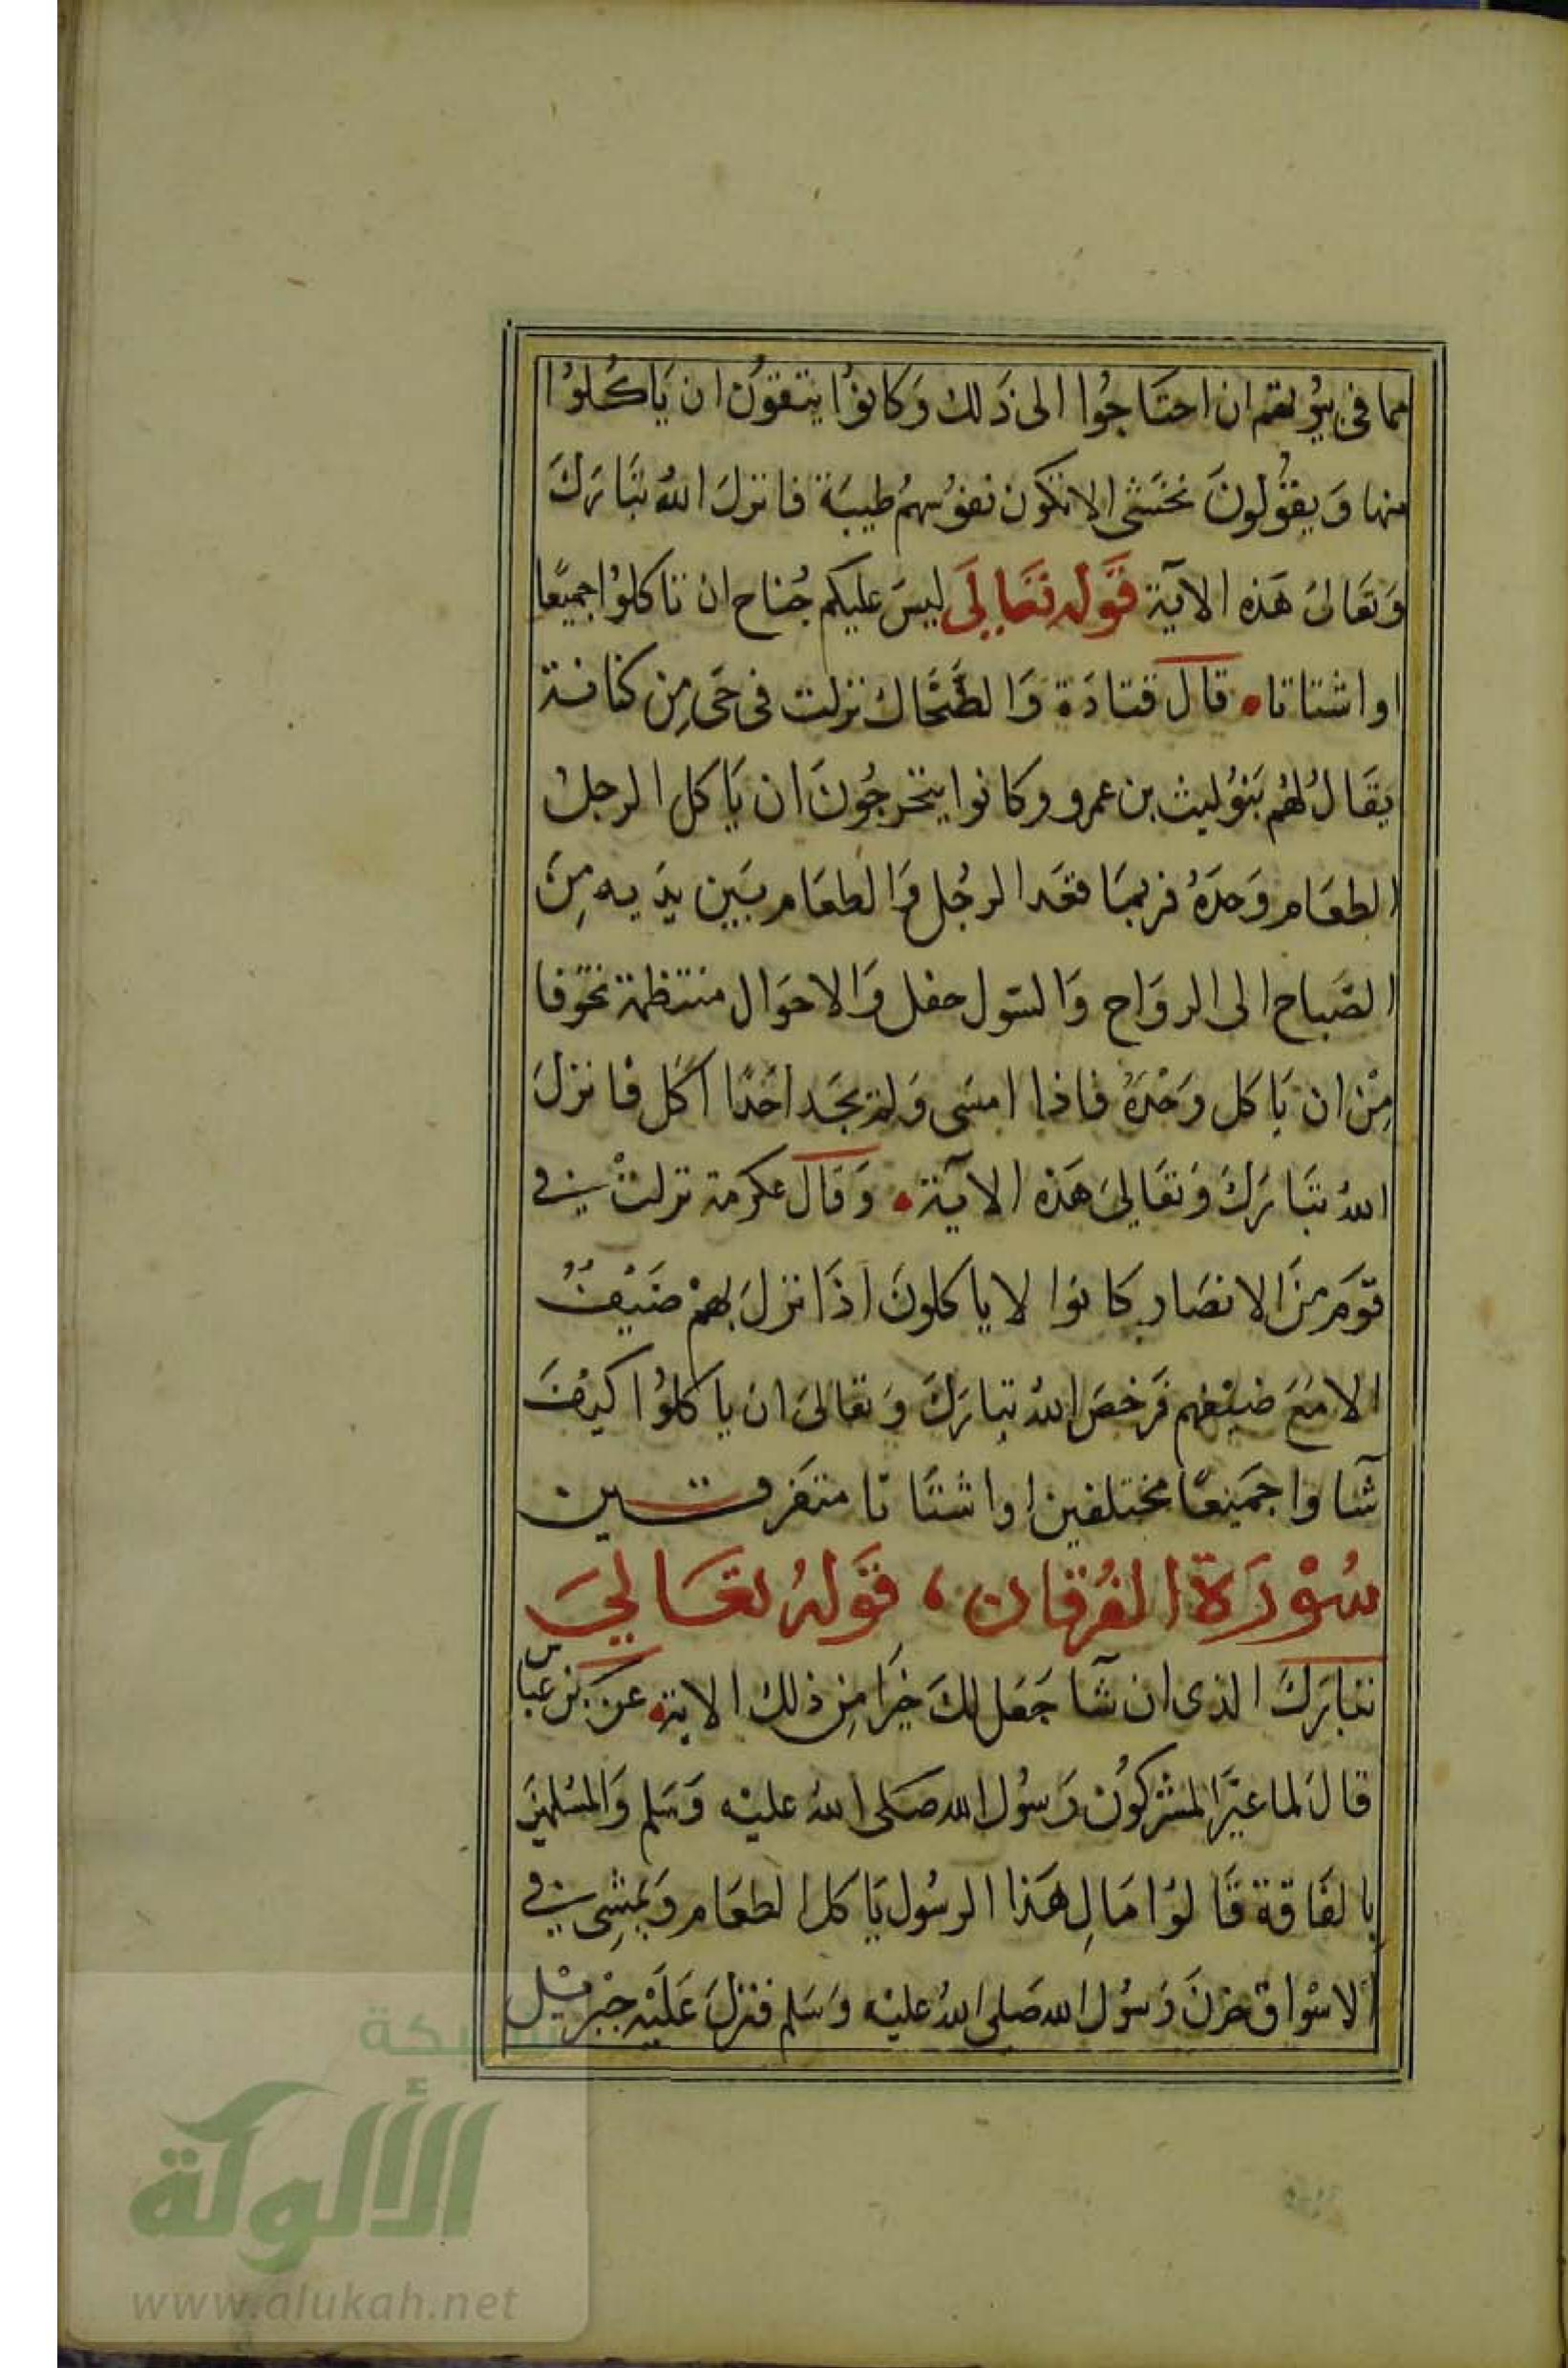 مما فى بيوتهم ان احتاجوا الى ذلك وكانوا يتقون ان ياكلوا
منها ويقولون نخشى الا تكون نفوسهم طيبة فانزل الله تبارك
وتعالى هذه الاية قوله تعالى ليس عليكم جناح ان تاكلوا جميعا
او اشتاتا قال قتادة والضحاك نزلت فى حى من كنانة
يقال لهم بنو ليث بن عمرو وكانوا يتحرجون ان ياكل الرجل
الطعام وحده فربما قعد الرجل والطعام بين يديه من
الصباح الى الرواح والشول حفل والاحوال منتظمة تخوفا
من ان ياكل وحده فاذا امسى ولم يجد احدا اكل فانزل
الله تبارك وتعالى هذه الاية وقال عكرمة نزلت فى
قوم من الانصار كانوا لا ياكلون اذا نزل بهم ضيف
الا مع ضيفهم فرخص الله تبارك وتعالى ان ياكلوا كيف
شآوا جميعا مختلفين او اشتاتا متفرقين
سورة الفرقان ، قوله تعالى
تبارك الذى ان شآ جعل لك خيرا من ذلك الاية عن بن عباس
قال لما عير المشركون رسول الله صلى الله عليه وسلم والمسلمين
بالفاقة قالوا مال هذا الرسول ياكل الطعام ويمشى فى
الاسواق حزن رسول الله صلى الله عليه وسلم فنزل عليه جبريل
شبكة
الألوكة
www.alukah.net